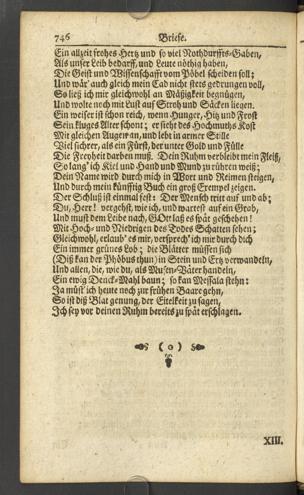 746 Briefe.
Ein allzeit frohes Hertz und so viel Nothdurffts-Gaben,
Als unser Leib bedarff, und Leute nöthig haben,
Die Geist und Wissenschafft vom Pöbel scheiden soll;
Und wär' auch gleich mein Cad nicht stets gedrungen voll,
So ließ ich mir gleichwohl an Mäßigkeit begnügen,
Und wolte noch mit Lust auf Stroh und Säcken liegen.
Ein weiser ist schon reich, wenn Hunger, Hitz und Frost
Sein kluges Alter schont; er sieht des Hochmuths Kost
Mit gleichen Augen an, und lebt in armer Stille
Viel sichrer, als ein Fürst, der unter Gold und Fülle
Die Freyheit darben muß. Dein Ruhm verbleibt mein Fleiß,
So lang' ich Kiel und Hand und Mund zu rühren weiß;
Dein Name wird durch mich in Wort und Reimen steigen,
Und durch mein künfftig Buch ein groß Exempel zeigen.
Der Schluß ist einmal fest: Der Mensch tritt auf und ab;
Du, Herr! vergehst, wie ich, und wartest auf ein Grab,
Und must dem Leibe nach, GOtt laß es spät geschehen!
Mit Hoch- und Niedrigen des Todes Schatten sehen;
Gleichwohl, erlaub' es mir, versprech' ich mir durch dich
Ein immer grünes Lob; die Blätter müssen sich
(Diß kan der Phöbus thun) in Stein und Ertz verwandeln,
Und allen, die, wie du, als Musen-Väter handeln,
Ein ewig Denck-Mahl baun; so kan Messala stehn:
Ja müst ich heute noch zur frühen Baare gehn,
So ist diß Blat genung, der Eitelkeit zu sagen,
Ich sey vor deinen Ruhm bereits zu spät erschlagen.
(o)
XIII.